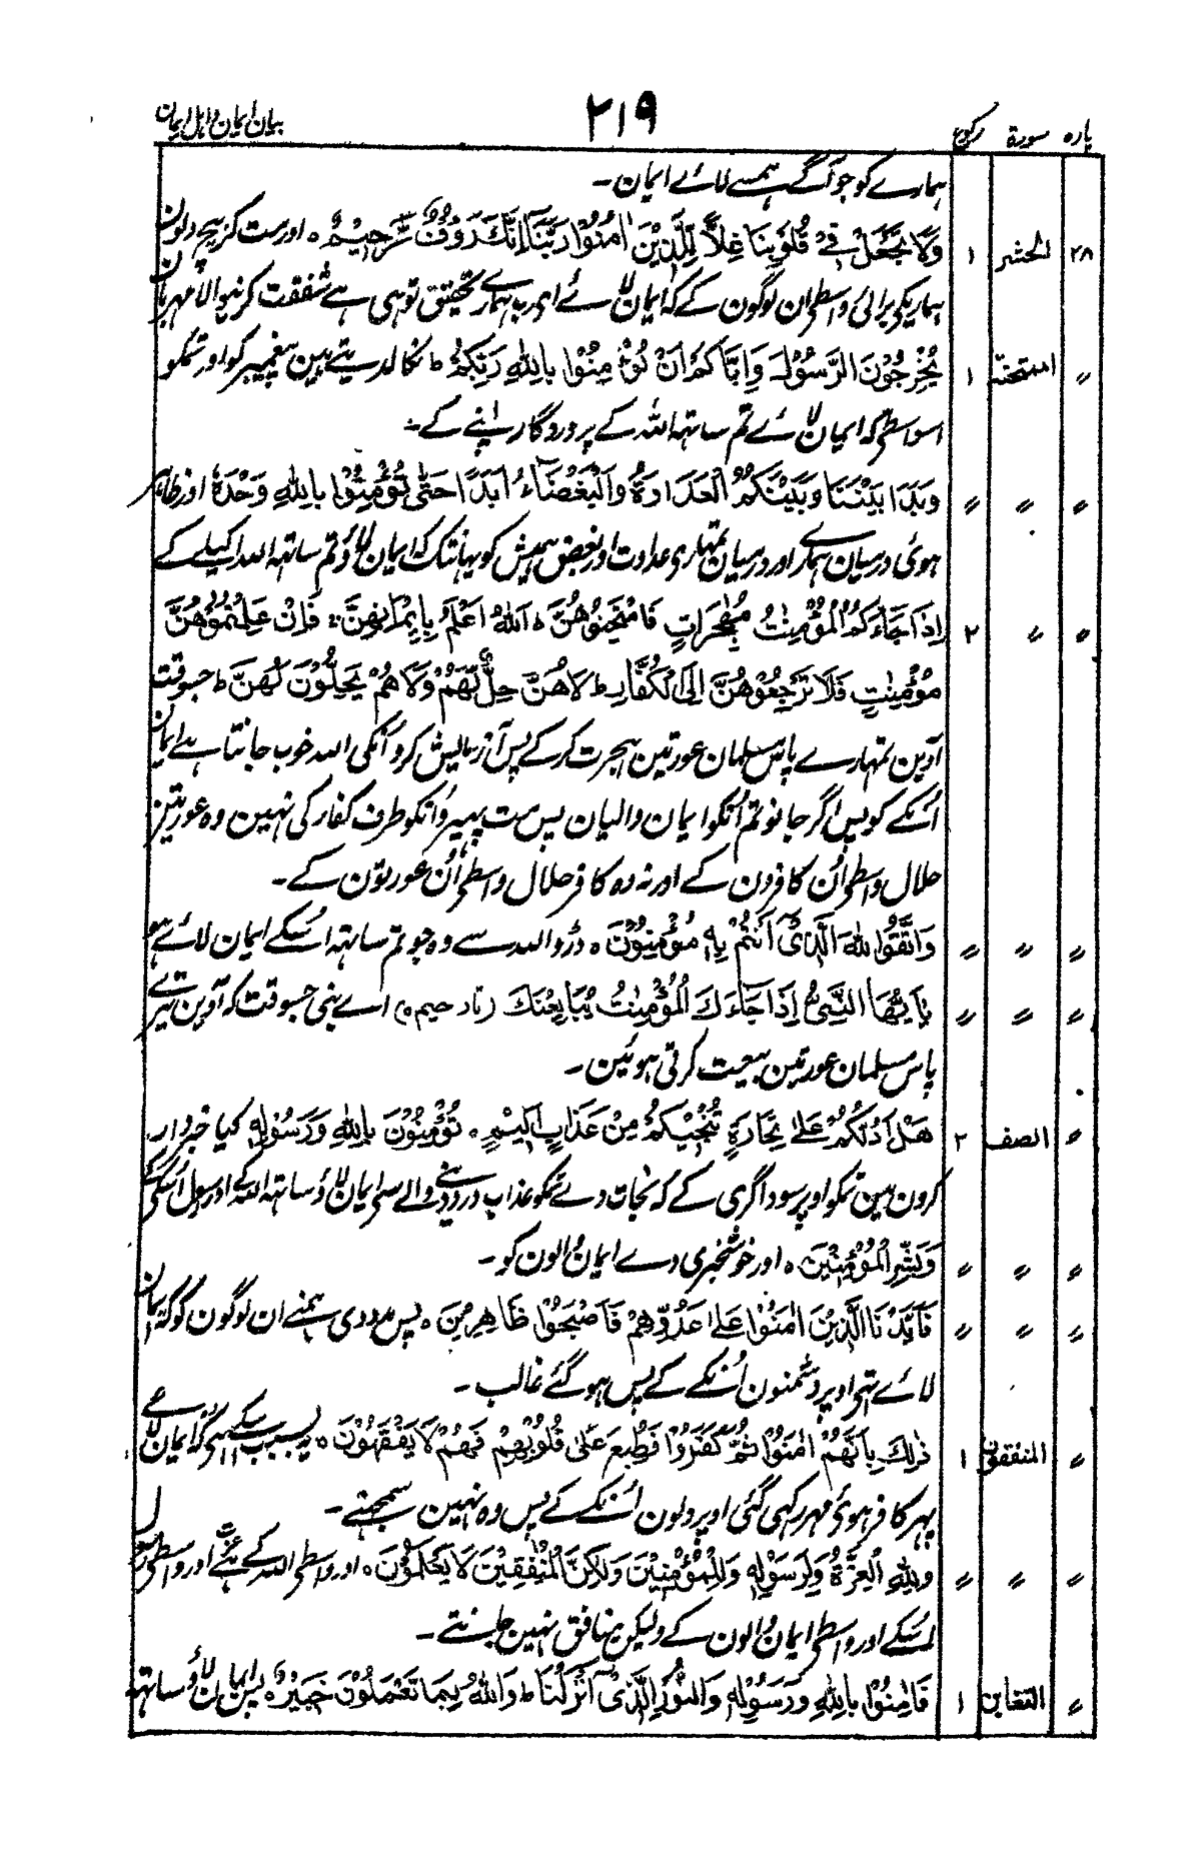 پارہ سورۃ رکوع ۲۱۹ بیان ایمان و اہل ایمان
ہمارے کو جو آگے ہمسے لائے ایمان۔
۲۸ الحشر ۱ وَلَا تَجْعَلْ فِیْ قُلُوْبِنَا غِلًّا لِّلَّذِیْنَ اٰمَنُوْا رَبَّنَاۤ اِنَّكَ رَءُوْفٌ رَّحِیْمٌ ٥ اور مت کر بیچ دلون
ہماریکے برائی واسطے ان لوگون کے کہ ایمان لائے اے رب ہمارے تحقیق تو ہی ہے شفقت کرنیوالا مہربان
〃 الممتحنۃ ۱ یُخْرِجُوْنَ الرَّسُوْلَ وَاِیَّاكُمْ اَنْ تُؤْمِنُوْا بِاللّٰهِ رَبِّكُمْ ط نکالدیتے ہین پیغمبر کو اور تمکو
اسواسطے کہ ایمان لائے تم ساتھ اللہ کے پروردگار اپنے کے۔
〃 〃 〃 وَبَدَا بَیْنَنَا وَبَیْنَكُمُ الْعَدَاوَةُ وَالْبَغْضَآءُ اَبَدًا حَتّٰی تُؤْمِنُوْا بِاللّٰهِ وَحْدَهٗ اور ظاہر
ہوئی درمیان ہمارے اور درمیان تمہارے عداوت اور بغض ہمیش کو یہانتک کہ ایمان لاؤ تم ساتھ اللہ اکیلے کے
〃 〃 ۲ اِذَا جَآءَكُمُ الْمُؤْمِنٰتُ مُهٰجِرَاتٍ فَامْتَحِنُوْهُنَّ ط اَللّٰهُ اَعْلَمُ بِاِیْمَانِهِنَّ ۚ فَاِنْ عَلِمْتُمُوْهُنَّ
مُؤْمِنٰتٍ فَلَا تَرْجِعُوْهُنَّ اِلَی الْكُفَّارِ ط لَا هُنَّ حِلٌّ لَّهُمْ وَلَا هُمْ یَحِلُّوْنَ لَهُنَّ ط جسوقت
آوین تمہارے پاس مسلمان عورتین ہجرت کر کے پس آزمایش کرو اُنکی اللہ خوب جانتا ہے ایمان
اُنکے کو پس اگر جانو تم اُنکو ایمان والیان پس مت پھیرو اُنکو طرف کفار کی نہین وہ عورتین
حلال واسطے اُن کافرون کے اور نہ وہ کافر حلال واسطے اُن عورتون کے۔
〃 〃 〃 وَاتَّقُوا اللّٰهَ الَّذِیْۤ اَنْتُمْ بِهٖ مُؤْمِنُوْنَ ٥ ڈرو اللہ سے وہ جو تم ساتھ اُسکے ایمان لائے ہو
〃 〃 〃 یٰۤاَیُّهَا النَّبِیُّ اِذَا جَآءَكَ الْمُؤْمِنٰتُ یُبَایِعْنَكَ (تا رحیم ٥) اے نبی جسوقت کہ آوین تیرے
پاس مسلمان عورتین بیعت کرتی ہوئین۔
〃 الصف ۲ هَلْ اَدُلُّكُمْ عَلٰی تِجَارَةٍ تُنْجِیْكُمْ مِّنْ عَذَابٍ اَلِیْمٍ ٥ تُؤْمِنُوْنَ بِاللّٰهِ وَرَسُوْلِهٖ کیا خبردار
کرون مین تمکو اوپر سوداگری کے کہ نجات دے تمکو عذاب درد دینے والے سے ایمان لاؤ ساتھ اللہ کے اور رسول اُسکے کے
〃 〃 〃 وَبَشِّرِ الْمُؤْمِنِیْنَ ٥ اور خوشخبری دے ایمان والون کو۔
〃 〃 〃 فَاَیَّدْنَا الَّذِیْنَ اٰمَنُوْا عَلٰی عَدُوِّهِمْ فَاَصْبَحُوْا ظَاهِرِیْنَ ٥ پس مدد دی ہمنے ان لوگون کو کہ ایمان
لائے تھے اوپر دشمنون اُنکے کے پس ہو گئے غالب۔
〃 المنٰفقون ۱ ذٰلِكَ بِاَنَّهُمْ اٰمَنُوْا ثُمَّ كَفَرُوْا فَطُبِعَ عَلٰی قُلُوْبِهِمْ فَهُمْ لَا یَفْقَهُوْنَ ٥ یہ بسبب اسکے ہے کہ ایمان لائے
پھر کافر ہوئے مہر رکھی گئی اوپر دلون اُنکے کے پس وہ نہین سمجھتے۔
〃 〃 〃 وَلِلّٰهِ الْعِزَّةُ وَلِرَسُوْلِهٖ وَلِلْمُؤْمِنِیْنَ وَلٰكِنَّ الْمُنٰفِقِیْنَ لَا یَعْلَمُوْنَ ٥ اور واسطے اللہ کے ہے عزت اور واسطے رسول
اُسکے اور واسطے ایمان والون کے ولیکن منافق نہین جانتے۔
〃 التغابن ۱ فَاٰمِنُوْا بِاللّٰهِ وَرَسُوْلِهٖ وَالنُّوْرِ الَّذِیْۤ اَنْزَلْنَا ط وَاللّٰهُ بِمَا تَعْمَلُوْنَ خَبِیْرٌ ٥ پس ایمان لاؤ ساتھ